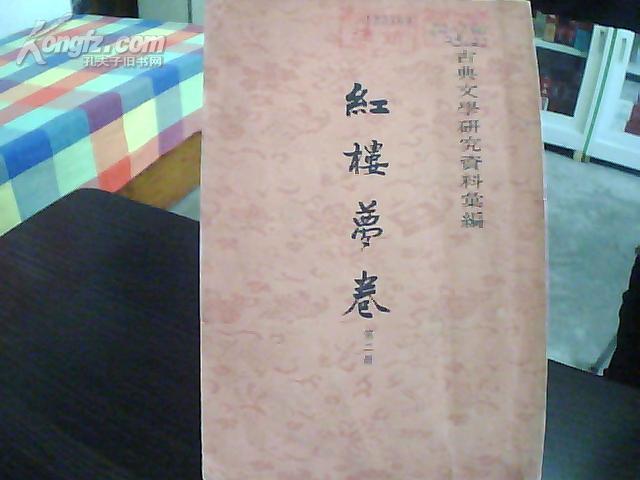 Kongfz.com
孔夫子旧书网
古典文學研究資料彙編
紅樓夢卷
第二册